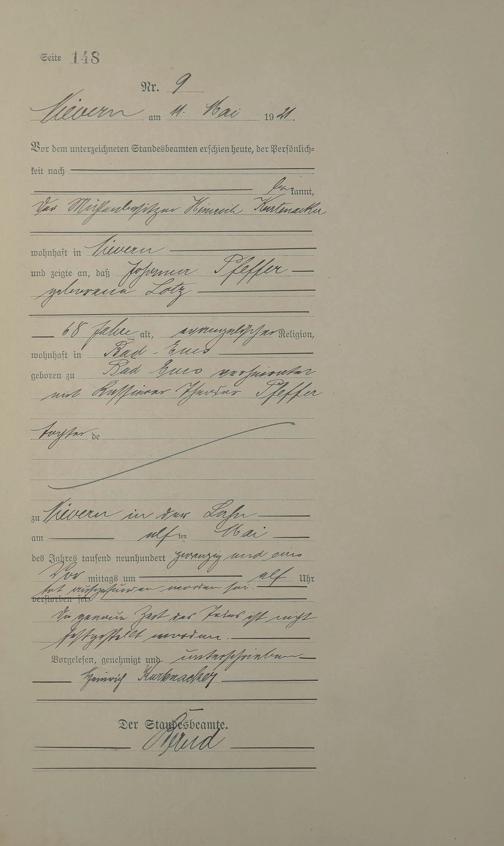 Seite 148
Nr. 9
Nievern am 11. Mai 1921.
Vor dem unterzeichneten Standesbeamten erschien heute, der Persönlich-
keit nach
bekannt,
der Mühlenbesitzer Heinrich Kurtenacker
wohnhaft in Nievern
und zeigte an, daß Johanna Pfeffer
geborene Lotz
68 Jahre alt, evangelischer Religion,
wohnhaft in Bad-Ems
geboren zu Bad Ems verheiratet
mit Kassierer Theodor Pfeffer
Tochter de
zu Nievern in der Lahn
am elften Mai
des Jahres tausend neunhundert zwanzig und eins
Vor mittags um elf Uhr
tot aufgefunden worden sei
verstorben sei
Die genaue Zeit des Todes ist nicht
festgestellt worden.
Vorgelesen, genehmigt und unterschrieben
Heinrich Kurtenacker
Der Standesbeamte.